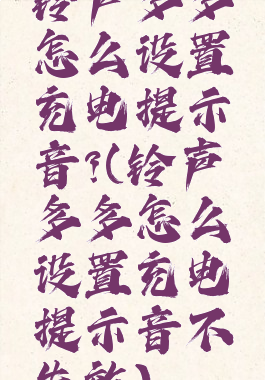 铃声多多
怎么设置
充电提示
音?(铃声
多多怎么
设置充电
提示音不